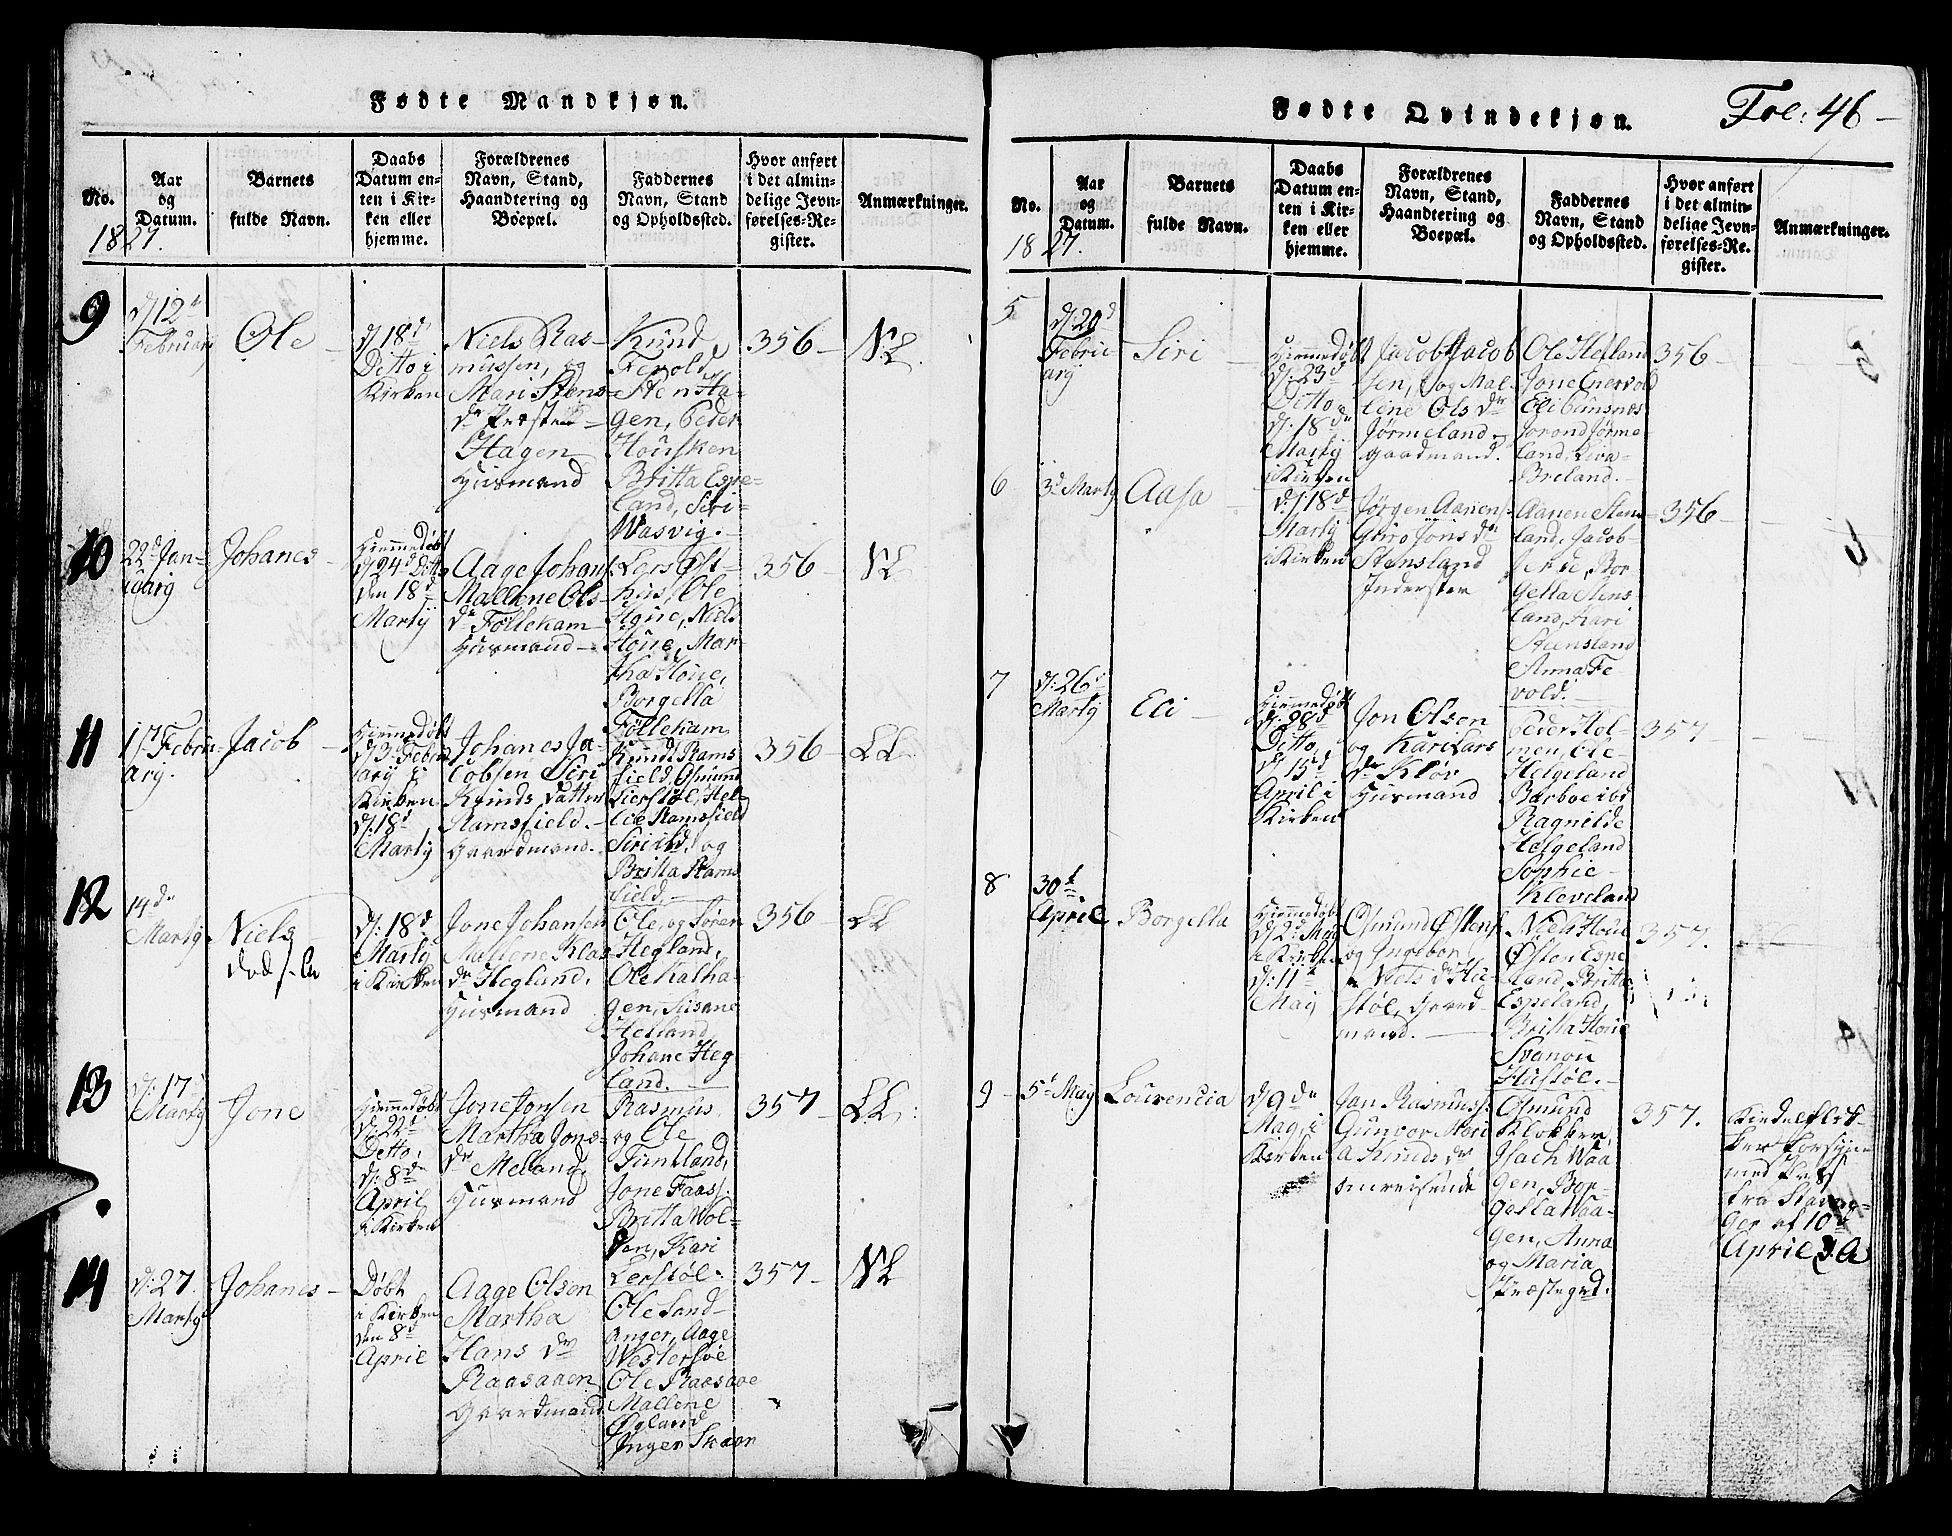 Fødte Mandkjøn.
No.
Aar
og
Datum.
Barnets
fulde Navn.
Daabs
Datum en-
ten i Kir-
ken eller
hjemme.
Forældrenes
Navn, Stand,
Haandtering og
Boepæl.
Faddernes
Navn, Stand
og Opholdssted.
Hvor anført
i det almin-
delige Jevn-
førelses-Re-
gister.
Anmærkninger.
1827.
9
d/12
Februarj
Ole
d/18d
Ditto i
Kirken
Niels Ras-
mussen, og
Mari Stens-
dr
Hagen
Husmand
Knud
Fevold,
Stensha-
gen, Peder
Housken
Britta Espe-
land, Siri
Wasvig.
356
NL
10
22d Jan-
uarij
Johanes
Hiemmedøbt
d/24d Ditto
den 18d
Martij
Aage Johans
Mallene Ols-
dr Følleham
Husmand
Lers Øst-
hus, Ole
Høue, Niels
Høue, Mar-
tha Høue,
Borgella
Følleham
356
NL
11
1st Febru-
arij.
Jacob
Hiemmedøbt
d/3d Febru
arij i
Kirken
d/18d
Martij
Johanes Ja-
cobsen Siri
Knuds Datter
Ramsfield.
Gaardmand.
Knud Rams
field, Osmund
Lierstøl, Hel-
lie Ramsfield
Siri ibd, og
Britta Rams
field.
356
LL.
12
14de
Martij
Niels
død
d/18d
Martij
i Kirken
Jone Johansen
Mallene Klas
dr Hegland,
Husmand
Ole, og Søren
Hegland,
Ole Kalha-
gen, Susane
Helland,
Johane Heg-
land.
356
LL
13
d: 17
Martij
Jone
Hiemmedøbt
d: 22d
Ditto,
d: 8de
April
i Kirken
Jone Jonsen
Martha Jons-
dr Meland,
Husmand
Rasmus
og Ole
Tuntland,
Jone Faass.
Britta Wol-
den, Kari
Lerstøl.
357
LL.
14
d: 27
Martij
Johanes
Døbt
i Kirken
den 8d
April
Aage Olsen
Martha
Hans dr
Raasaaen
Gaardmand
Ole Sand-
anger, Aage
Westersøe
Ole Raasaae
Mallene
Øgland
Inger Skaar
357
NL
Fødte Qvindekjøn.
Fol: 46
No.
Aar
og
Datum.
Barnets
fulde Navn.
Daabs
Datum en-
ten i Kir-
ken eller
hjemme.
Forældrenes
Navn, Stand,
Haandtering og
Boepæl.
Faddernes
Navn, Stand
og Opholdssted.
Hvor anført
i det almin-
delige Jevn-
førelses-Re-
gister.
Anmærkninger.
1827.
5
d: 20d
Febru
arij
Siri
Hiemmedøbt
d: 23d
Ditto
d: 18de
Martij
i Kirken
Jacob Jacob
sen, og Mal-
lene Ols dr
Jørmeland
Gaardmand.
Ole Helland
Jone Enervold
Eli Bunsnes
Jorond Jørme-
land, Liva
Breland.
356
6
3d Martij
Aasa
d/18d
Martij
i Kirken
Jørgen Aanens.
Guro Jons dr
Stensland
Inderster
Aanen Stens
land, Jacob
Bor-
gella Stens-
land, Kari
Steensland
Anna Fe
vold.
356
7
d: 26
Martij
Eli
Hiemmedøbt
d: 28d
Ditto,
d 15d
April i
Kirken
Jon Olsen
og Kari Lars
dr Kløv
Husmand
Peder Hol-
men, Ole
Helgeland
Barboe ibd
Ragnilde
Helgeland
Sophie
Kleveland
357
8
30t
April
Borgella
Hiemmedøbt
d 2d Maj
i Kirken
d: 11t
Maij
Osmund Østens
og Ingebor
Niels dr Hu
støl, Gaard
mand.
Niels Houe
Østen Espe
land, Britta
Espeland,
Britta Houe
Svanou
Hustøl.
357.
9
5t Maij
Lourencia
d/9de
Maij, i
Kirken
Jan Rasmuss.
Gunvor Mari
a Knuds dr
omreisende
Osmund
Klokker,
Isach Waa
gen, Bor-
gella Waa-
gen, Anna
og Maria
Præstegrd.
357.
fra Stavan-
ger af 10d
April d. A